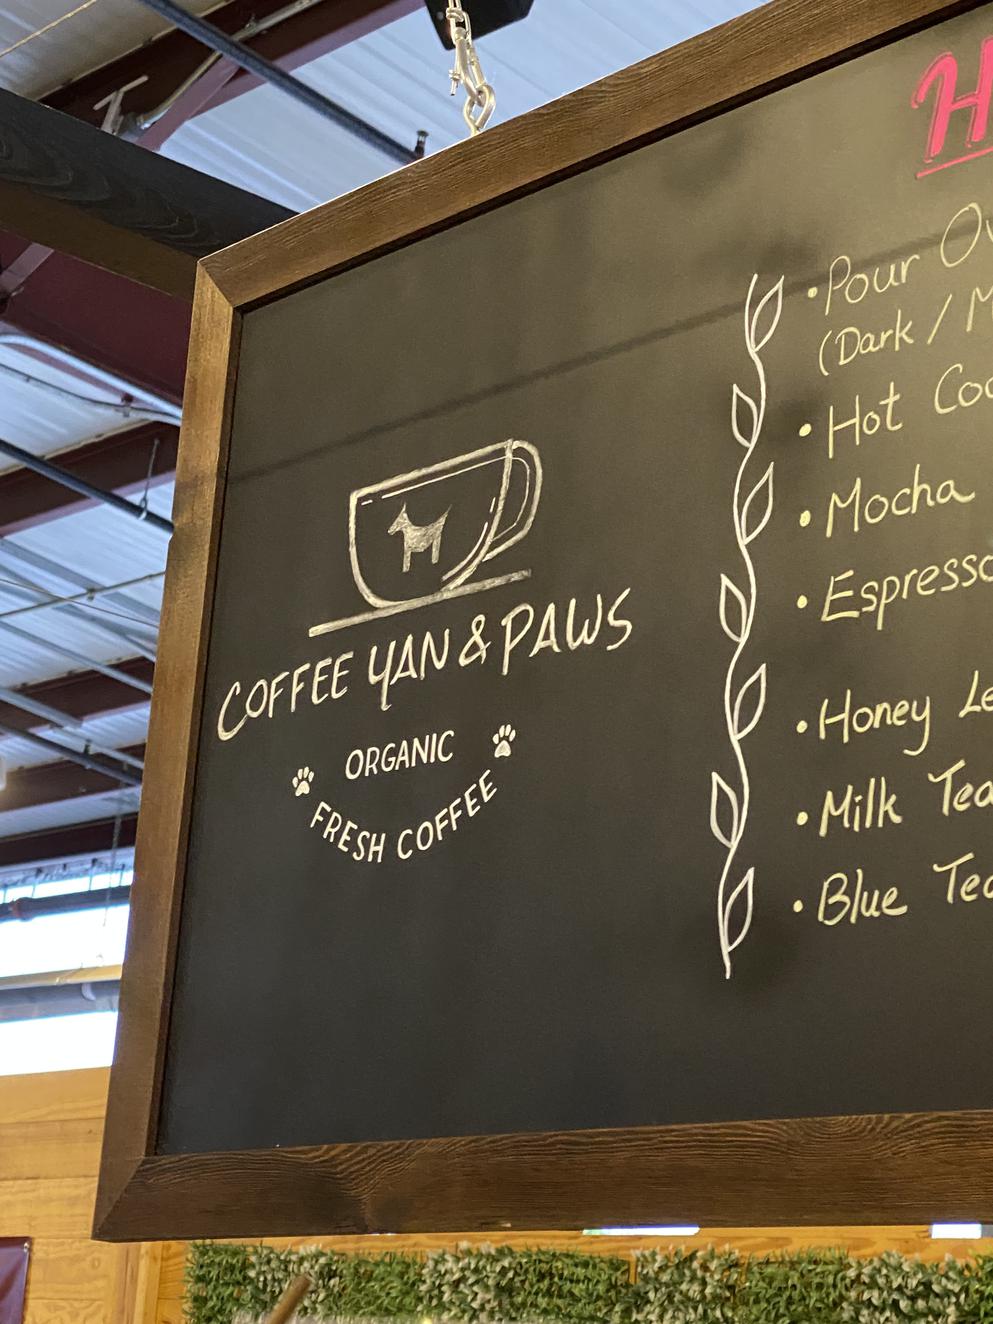 COFFEE YAN & PAWS
ORGANIC
FRESH COFFEE
• Pour
(Dark /
• Hot
• Mocha
• Espresso
• Honey
• Milk
• Blue